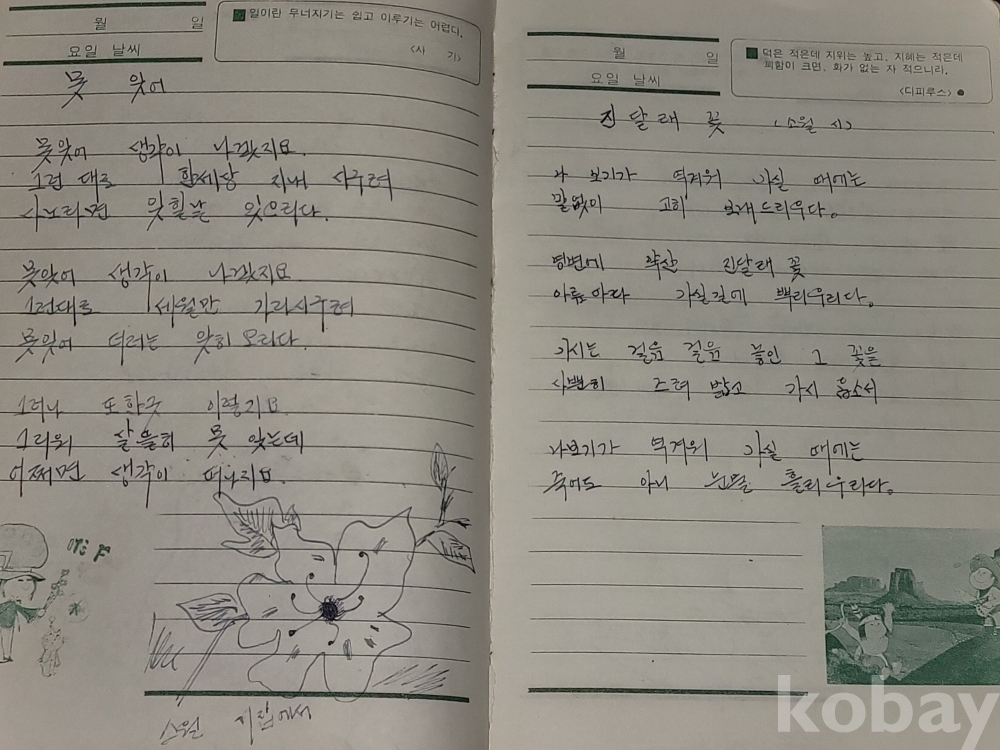 월 일
요일 날씨
일이란 무너지기는 쉽고 이루기는 어렵다.
<사 기>
못 잊어
못잊어 생각이 나겠지요.
그런 대로 한세상 지내 시구려
사노라면 잊힐날 있으리다.
못잊어 생각이 나겠지요
그런대로 세월만 가라시구려
못잊어 더러는 잊히오리다.
그러나 또한긋 이렇지요
그리워 살뜰히 못 잊는데
어쩌면 생각이 떠나지요.
소월 시집에서
월 일
요일 날씨
덕은 적은데 지위는 높고, 지혜는 적은데
꾀함이 크면, 화가 없는 자 적으니라.
<디피루스>
진달래 꽃 (소월 시)
나 보기가 역겨워 가실 때에는
말없이 고히 보내드리우다.
영변에 약산 진달래 꽃
아름아다 가실길에 뿌리우리다.
가시는 걸음 걸음 놓인 그 꽃을
사뿐히 즈려 밟고 가시 옵소서
나보기가 역겨워 가실 때에는
죽어도 아니 눈물 흘리우리다.
kobay